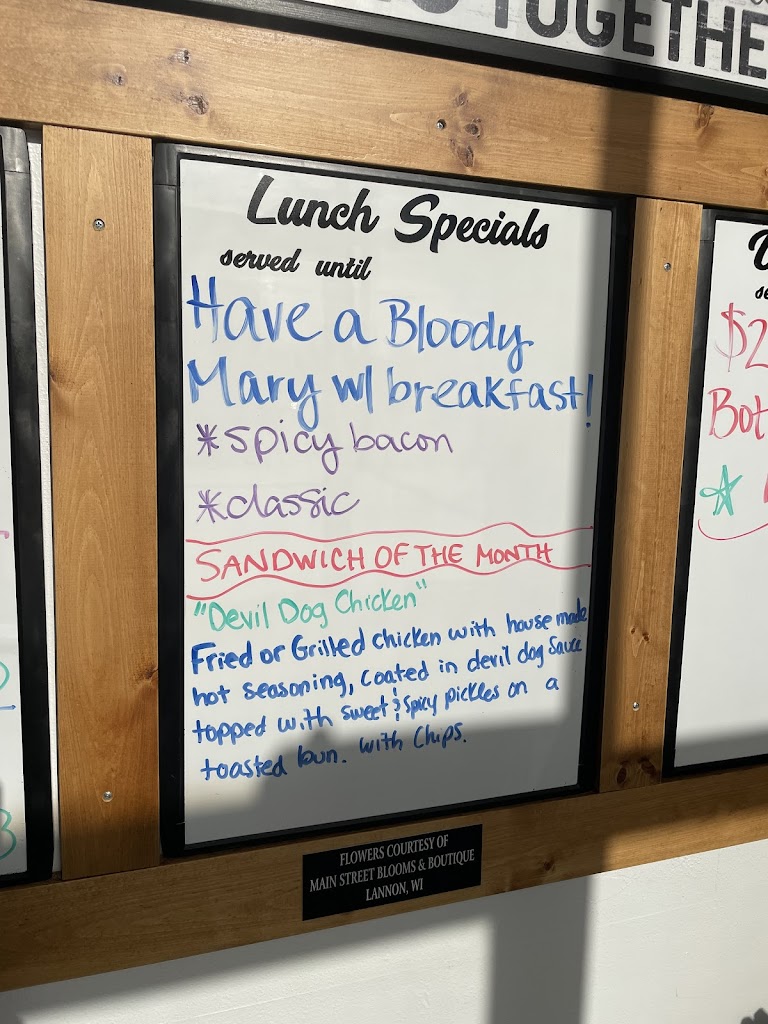 TOGETHE
Lunch Specials
served until
Have a Bloody
Mary w/ breakfast!
*spicy bacon
*classic
SANDWICH OF THE MONTH
"Devil Dog Chicken"
Fried or Grilled chicken with house made
hot seasoning, coated in devil dog sauce
topped with sweet & spicy pickles on a
toasted bun. with Chips.
FLOWERS COURTESY OF
MAIN STREET BLOOMS & BOUTIQUE
LANNON, WI
$2
Bot